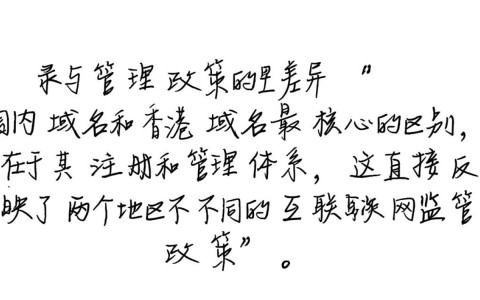 录与管理政策的差异"
国内域名和香港域名最核心的区别，
在于其注册和管理体系，这直接反
映了两个地区不不同的互联联网监管
政策"。